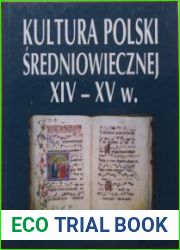 KULTURA POLSKI
ŚREDNIOWIECZNEJ
XIV – XV w.
ECO TRIAL BOOK